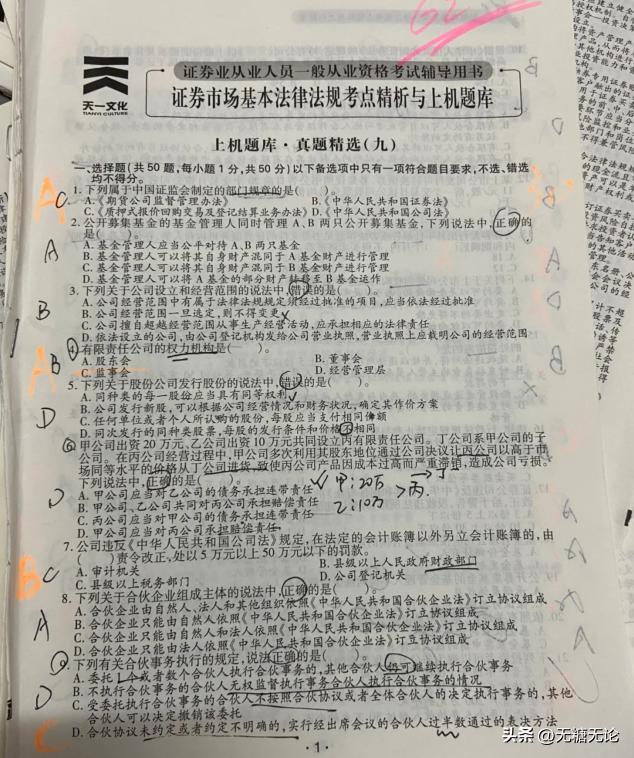 62
天一文化
TIANYI CULTURE
证券业从业人员一般从业资格考试辅导用书
证券市场基本法律法规考点精析与上机题库
上机题库·真题精选(九)
一、选择题(共50题,每小题1分,共50分)以下备选项中只有一项符合题目要求,不选、错选
均不得分。
A C 1. 下列属于中国证监会制定的部门规章的是( )。
A.《期货公司监督管理办法》 B.《中华人民共和国证券法》
C.《质押式报价回购交易及登记结算业务办法》 D.《中华人民共和国公司法》
2. 公开募集基金的基金管理人同时管理A、B两只公开募集基金,下列说法中,正确的
是( )。
A
A. 基金管理人应当公平对待A、B两只基金
B. 基金管理人可以将其自身财产混同于A基金财产进行管理
C. 基金管理人可以将其自身财产混同于B基金财产进行管理
D. 基金管理人可以将A基金的部分财产转移至B基金运作
3. 下列关于公司设立和经营范围的说法中,错误的是( )。
A. 公司经营范围中有属于法律法规规定须经过批准的项目,应当依法经过批准
B
B. 公司经营范围一旦选定,则不得变更
C. 公司擅自超越经营范围从事生产经营活动,应承担相应的法律责任
D. 依法设立的公司,由公司登记机关发给公司营业执照,营业执照上应载明公司的经营范围
有限责任公司的权力机构是( )。
A B
A. 股东会 B. 董事会
C. 监事会 D. 经营管理层
5. 下列关于股份公司发行股份的说法中,错误的是( )。
A. 同种类的每一股份应当具有同等权利
B. 公司发行新股,可以根据公司经营情况和财务状况,确定其作价方案
D
C. 任何单位或者个人所认购的股份,每股应当支付相同价额
D. 同次发行的同种类股票,每股的发行条件和价格不相同
甲公司出资20万元、乙公司出资10万元共同设立丙有限责任公司。丁公司系甲公司的子
公司。在丙公司经营过程中,甲公司多次利用其股东地位通过公司决议让丙公司以高于市
场同等水平的价格从丁公司进货,致使丙公司产品因成本过高而严重滞销,造成公司亏损。
下列说法中,正确的是( )。
A. 甲公司应当对乙公司的债务承担连带责任
甲:20万
丁
D
B. 甲公司、乙公司共同对丙公司承担赔偿责任
乙:10万
丙.
C. 丙公司应当对甲公司的债务承担连带责任
D. 甲公司应当对丙公司承担赔偿责任
7. 公司违反《中华人民共和国公司法》规定,在法定的会计账簿以外另立会计账簿的,由
( )责令改正,处以5万元以上50万元以下的罚款。
B C
A. 审计机关 B. 县级以上人民政府财政部门
C. 县级以上税务部门 D. 公司登记机关
8. 下列关于合伙企业组成主体的说法中,正确的是( )。
A. 合伙企业由自然人、法人和其他组织依照《中华人民共和国合伙企业法》订立协议组成
A
B. 合伙企业只能由自然人依照《中华人民共和国合伙企业法》订立协议组成
C. 合伙企业只能由自然人和法人依照《中华人民共和国合伙企业法》订立协议组成
D. 合伙企业只能由法人依照《中华人民共和国合伙企业法》订立协议组成
下列有关合伙事务执行的规定,说法正确的是( )。
A. 委托1个或者数个合伙人执行合伙事务的,其他合伙人仍可继续执行合伙事务
D
B. 不执行合伙事务的合伙人无权监督执行事务合伙人执行合伙事务的情况
C. 受委托执行合伙事务的合伙人不按照合伙协议或者全体合伙人的决定执行事务的,其他
合伙人可以决定撤销该委托
C
D. 合伙协议未约定或者约定不明确的,实行经出席会议的合伙人过半数通过的表决方法
·1·
头条 @无糖无论